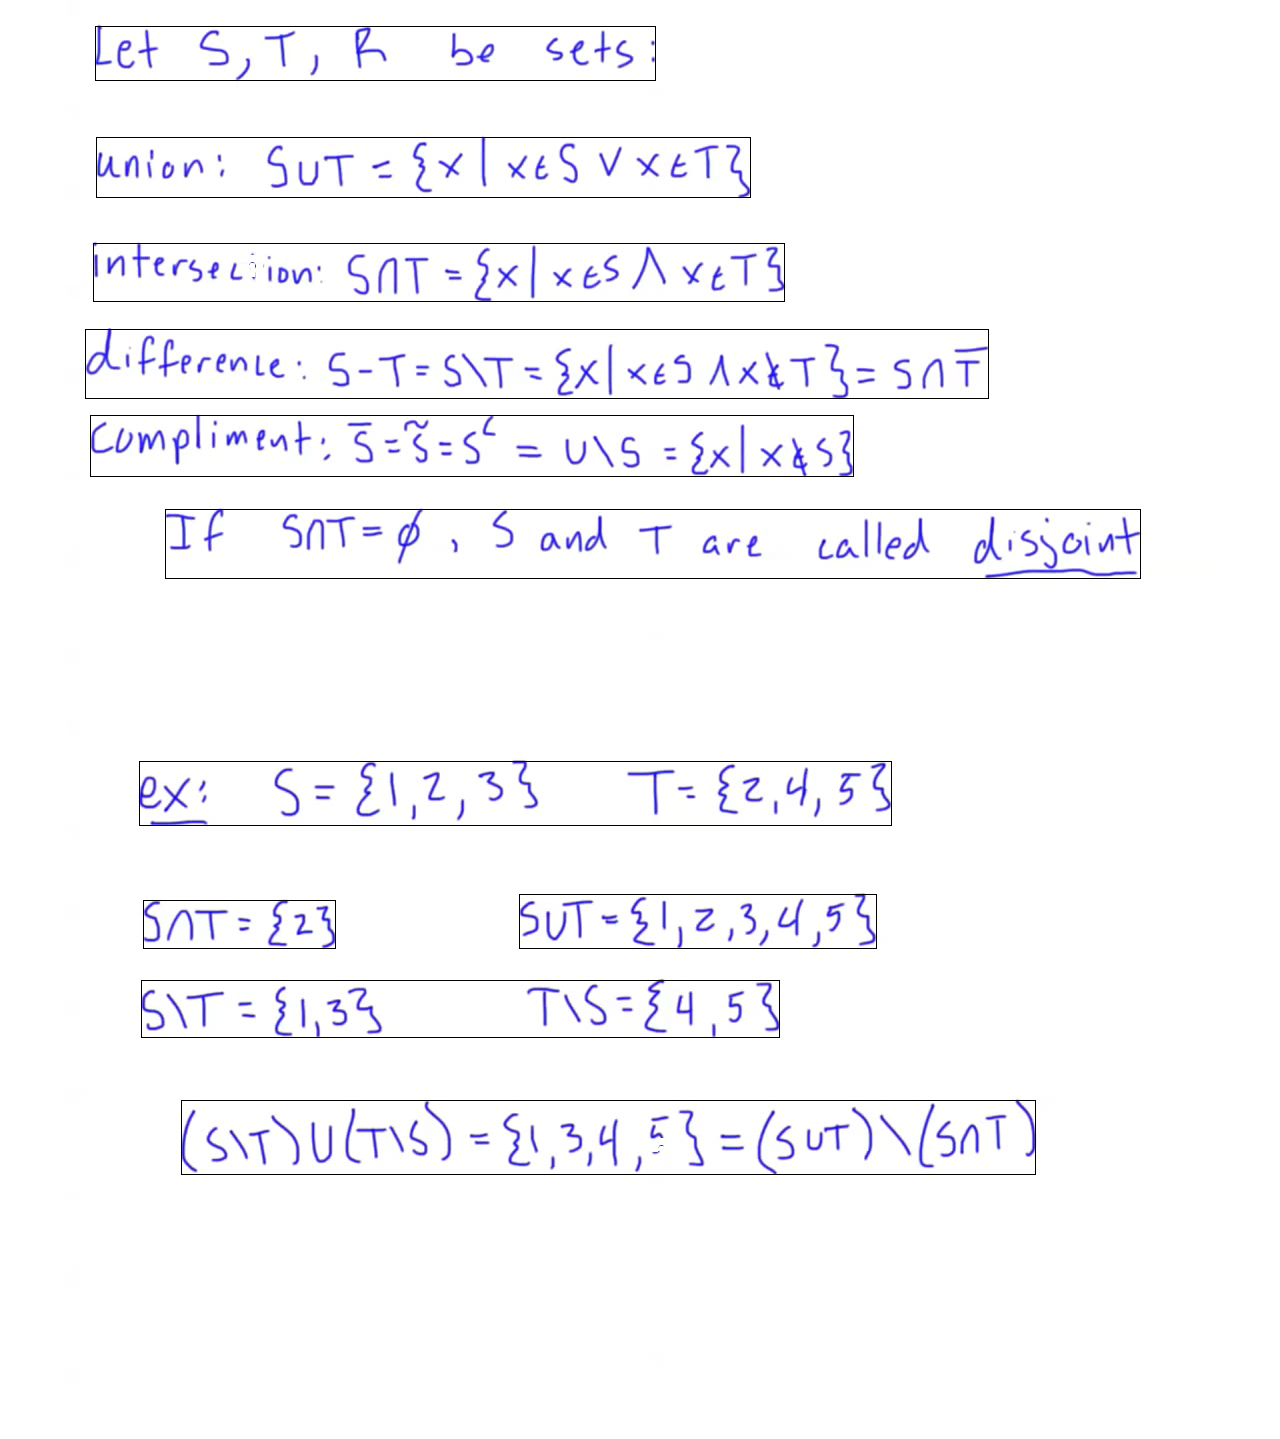 Let S, T, R be sets:
union: S∪T = {x | x∈S ∨ x∈T}
intersection: S∩T = {x | x∈S ∧ x∈T}
difference: S-T = S\T = {x | x∈S ∧ x∉T} = S∩T̅
Compliment: S̅ = S̃ = Sᶜ = U\S = {x | x∉S}
If S∩T = ϕ, S and T are called disjoint
ex: S = {1, 2, 3} T = {2, 4, 5}
S∩T = {2} S∪T = {1, 2, 3, 4, 5}
S\T = {1, 3} T\S = {4, 5}
(S\T)∪(T\S) = {1, 3, 4, 5} = (S∪T)\(S∩T)